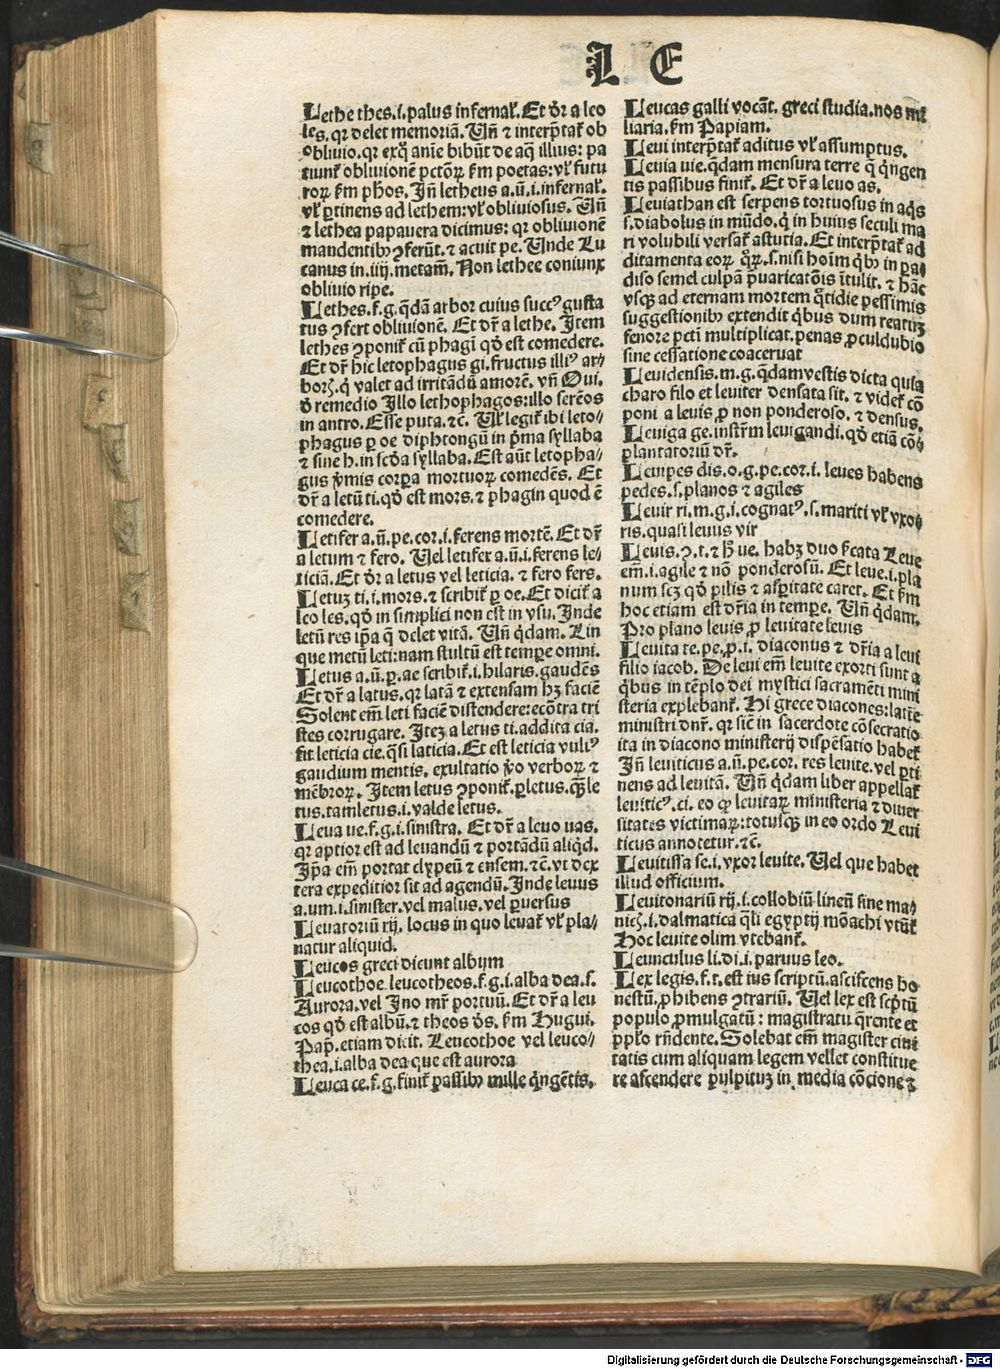 L E
Lethe thes.i.palus infernal̃.Et dr̃ a leo
les.qr delet memoriã.Uñ ⁊ interp̃tat̃ ob
obliuio.qr exq̃ anĩe bibũt de aq̃ illius: pa
tiunt̃ obliuionẽ pctõꝝ s̃m poetas:vl̃ futu
roꝝ s̃m phos.Jñ letheus a.ũ.i.infernal̃.
vl̃ ꝑtinens ad lethem:vl̃ obliuiosus.Uñ
⁊ lethea papauera dicimus: qr obliuionẽ
mandentibꝰ ꝯferũt.⁊ acuit pe.Unde Lu
canus in.iiij.metam̃.Non lethee coniunx
obliuio ripe.
Lethes.f.g.q̃dã arbor cuius succꝰ gusta
tus ꝯfert obliuionẽ.Et dr̃ a lethe.Jtem
lethes ꝯponit̃ cũ phagĩ qd̃ est comedere.
Et dr̃ hic letophagus gi.fructus illiꝰ ar⸗
borꝫ.q̇ valet ad irritãdũ amorẽ.vñ Oui.
d̃ remedio Jllo lethophagos:illo serẽos
in antro.Esse puta.⁊c̃.Vl̃ legit̃ ibi leto⸗
phagus ꝑ oe diphtongũ in p̃ma syllaba
⁊ sine h.in scd̃a syllaba.Est aũt letopha⸗
gus v̓mis corpa mortuoꝝ comedẽs.Et
dr̃ a letũ ti.qd̃ est mors.⁊ phagin quod ẽ
comedere.
Letifer a.ũ.pe.cor.i.ferens mortẽ.Et dr̃
a letum ⁊ fero.Uel letifer a.ũ.i.ferens le⸗
ticiã.Et dr̃ a letus vel leticia.⁊ fero fers.
Letuꝫ ti.i.mors.⁊ scribit̃ ꝑ oe.Et dicit̃ a
leo les.qd̃ in simplici non est in vsu.Jnde
letũ res ip̃a q̃ delet vitã.Uñ q̇dam.Lin
que metũ leti:nam stultũ est tempe omni.
Letus a.ũ.ꝑ.ae scribit̃.i.hilaris.gaudẽs
Et dr̃ a latus.qr latã ⁊ extensam hꝫ faciẽ
Solent em̃ leti faciẽ distendere:ecõtra tri
stes corrugare.Jteꝫ a letus ti.addita cia.
fit leticia cie.q̃si laticia.Et est leticia vultꝰ
gaudium mentis.exultatio v̓o verboꝝ ⁊
mẽbroꝝ.Jtem letus ꝯponit̃.ꝑletus.q̃ꝫle
tus.tamletus.i.valde letus.
Leua ue.f.g.i.sinistra.Et dr̃ a leuo uas.
qr aptior est ad leuandũ ⁊ portãdũ aliqd̃.
Jp̃a em̃ portat clypeũ ⁊ ensem.⁊c̃.vt dex
tera expeditior sit ad agendũ.Jnde leuus
a.um.i.sinister.vel malus.vel ꝑuersus
Leuatoriũ rij.locus in quo leuat̃ vl̃ pla⸗
natur aliquid.
Leucos greci dicunt album
Leucothoe leucotheos.f.g.i.alba dea.s.
Aurora.vel Jno mr̃ portuũ.Et dr̃ a leu
cos qd̃ est albũ.⁊ theos ds̃.s̃m Hugui.
Pap̃.etiam dicit.Leucothoe vel leuco⸗
thea.i.alba dea que est aurora
Leuca ce.f.g.finit̃ passibꝰ mille q̇ngẽtis.
Leucas galli vocãt.greci studia.nos mi
liaria.s̃m Papiam.
Leui interp̃tat̃ aditus vl̃ assumptus.
Leuia uie.q̃dam mensura terre q̃ q̇ngen
tis passibus finit̃.Et dr̃ a leuo as.
Leuiathan est serpens tortuosus in aq̇s
s.diabolus in mũdo.q̇ in huius seculi ma
ri volubili versat̃ astutia.Et interp̃tat̃ ad
ditamenta eoꝝ q̃ꝝ.s.nisi hoĩm q̇bꝰ in pa
diso semel culpã p̃uaricatõis ĩtulit.⁊ hãc
vsqꝫ ad eternam mortem q̃tidie pessimis
suggestionibꝰ extendit q̇bus dum reatuꝫ
fenore pcti multiplicat.penas ꝓculdubio
sine cessatione coaceruat
Leuidensis.m.g.q̃damvestis dicta quia
charo filo et leuiter densata sit.⁊ videt̃ cõ
poni a leuis ꝓ non ponderoso.⁊ densus.
Leuiga ge.instr̃m leuigandi.qd̃ etiã cõ⸗
plantatoriũ dr̃.
Leuipes dis.o.g.pe.cor.i.leues habens
pedes.s.planos ⁊ agiles
Leuir ri.m.g.i.cognatꝰ.s.mariti vl̃ vxo⸗
ris.quasi leuus vir
Leuis.ꝯ.t.⁊ h̃ ue.habꝫ duo sc̃ata Leue
em̃.i.agile ⁊ nõ ponderosũ.Et leue.i.pla
num scꝫ qd̃ pilis ⁊ asp̃itate caret.Et s̃m
hoc etiam est dr̃ia in tempe.Uñ q̇dam.
Pro plano leuis ꝓ leuitate leuis
Leuita te.pe.ꝓ.i.diaconus ⁊ dr̃ia a leui
filio iacob.De leui em̃ leuite exorti sunt a
q̇bus in tẽplo dei mystici sacramẽti mini
steria explebant̃.Hi grece diacones:latĩe
ministri dn̄r.qr sic̃ in sacerdote cõsecratio
ita in diacono ministerij dispẽsatio habet̃
Jñ leuiticus a.ũ.pe.cor.res leuite.vel ꝑti
nens ad leuitã.Uñ q̇dam liber appellat̃
leuiticꝰ.ci.eo ꝙ leuitaꝝ ministeria ⁊ diuer
sitates victimaꝝ:totusqꝫ in eo ordo Leui
ticus annotetur.⁊c̃.
Leuitissa se.i.vxor leuite.Uel que habet
illud officium.
Leuitonariũ rij.i.collobiũ lineũ sine ma⸗
nicꝫ.i.dalmatica q̃li egyptij mõachi vtũt̃
Hoc leuite olim vtebant̃.
Leunculus li.di.i.paruus leo.
Lex legis.f.t.est ius scriptũ.asciscens ho
nestũ.ꝓhibens ꝯtrariũ.Uel lex est scp̃tũ
populo ꝓmulgatũ: magistratu q̃rente et
pplo rñdente.Solebat em̃ magister ciui
tatis cum aliquam legem vellet constitue
re ascendere pulpituꝫ in media cõcione ⁊
Digitalisierung gefördert durch die Deutsche Forschungsgemeinschaft - DFG